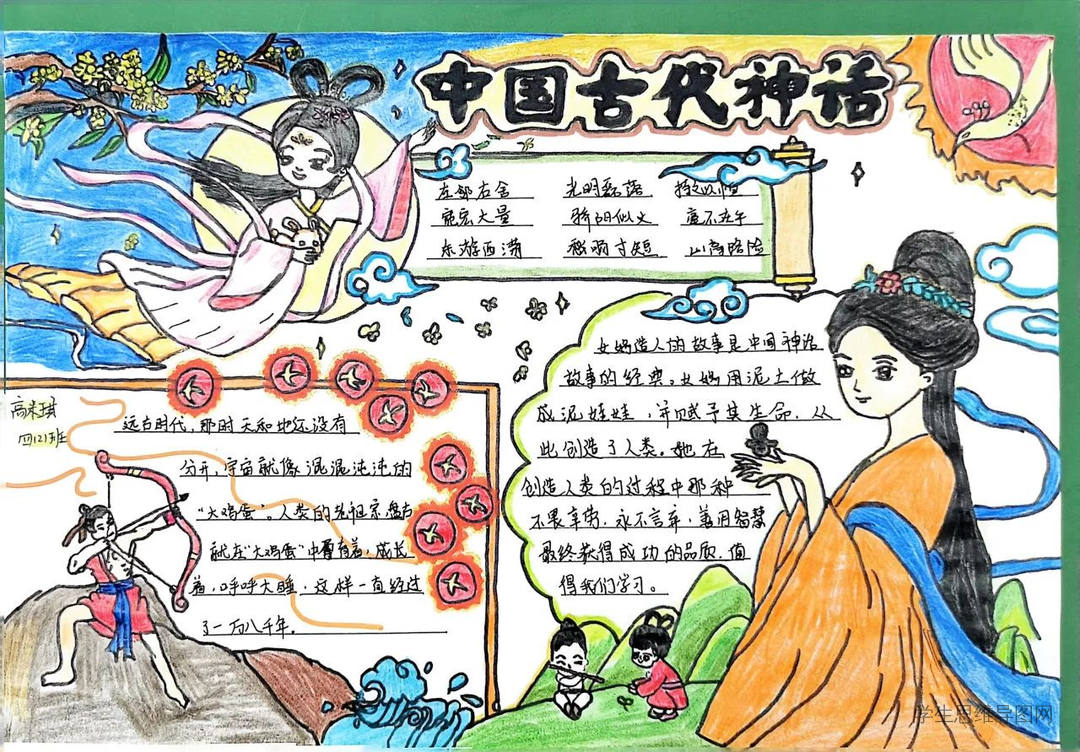 中国古代神话
左邻右舍 光明磊落 持之以恒
宽宏大量 骄阳似火 座不虚午
东游西荡 秘胸寸短 山高路险
女娲造人的故事是中国神话
故事的经典。女娲用泥土做
成泥娃娃，并赋予其生命，从
此创造了人类。她在
创造人类的过程中那种
不畏辛劳，永不言弃，善用智慧
最终获得成功的品质，值
得我们学习。
四121班
远古时代，那时天和地还没有
分开，宇宙就像混混沌沌的
“大鸡蛋”。人类的先祖宗盘古
就在“大鸡蛋”中孕育着，成长
着，呼呼大睡，这样一直经过
了一万八千年。
学生思维导图网